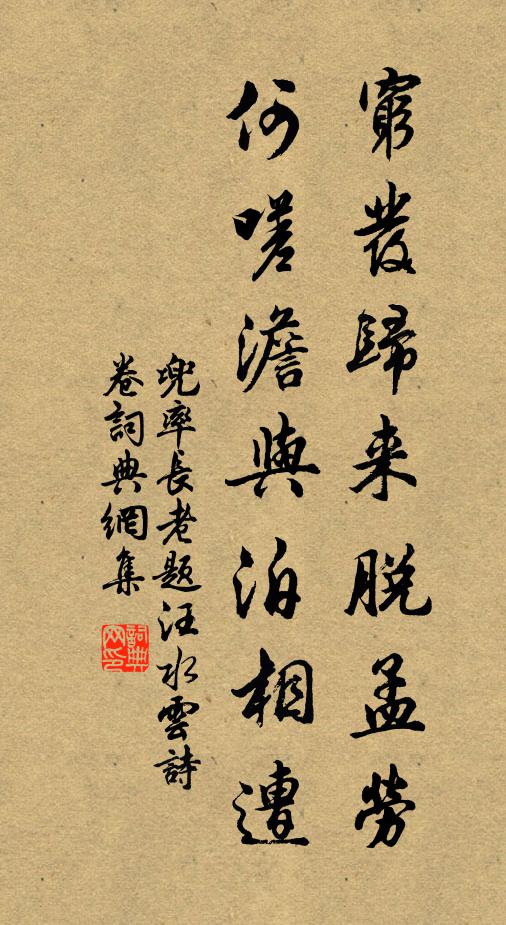 窮發歸来脫孟勞
何嗟澹與泊相遭
兜率長老題汪水雲詩
卷詞典網集
詞典
网印